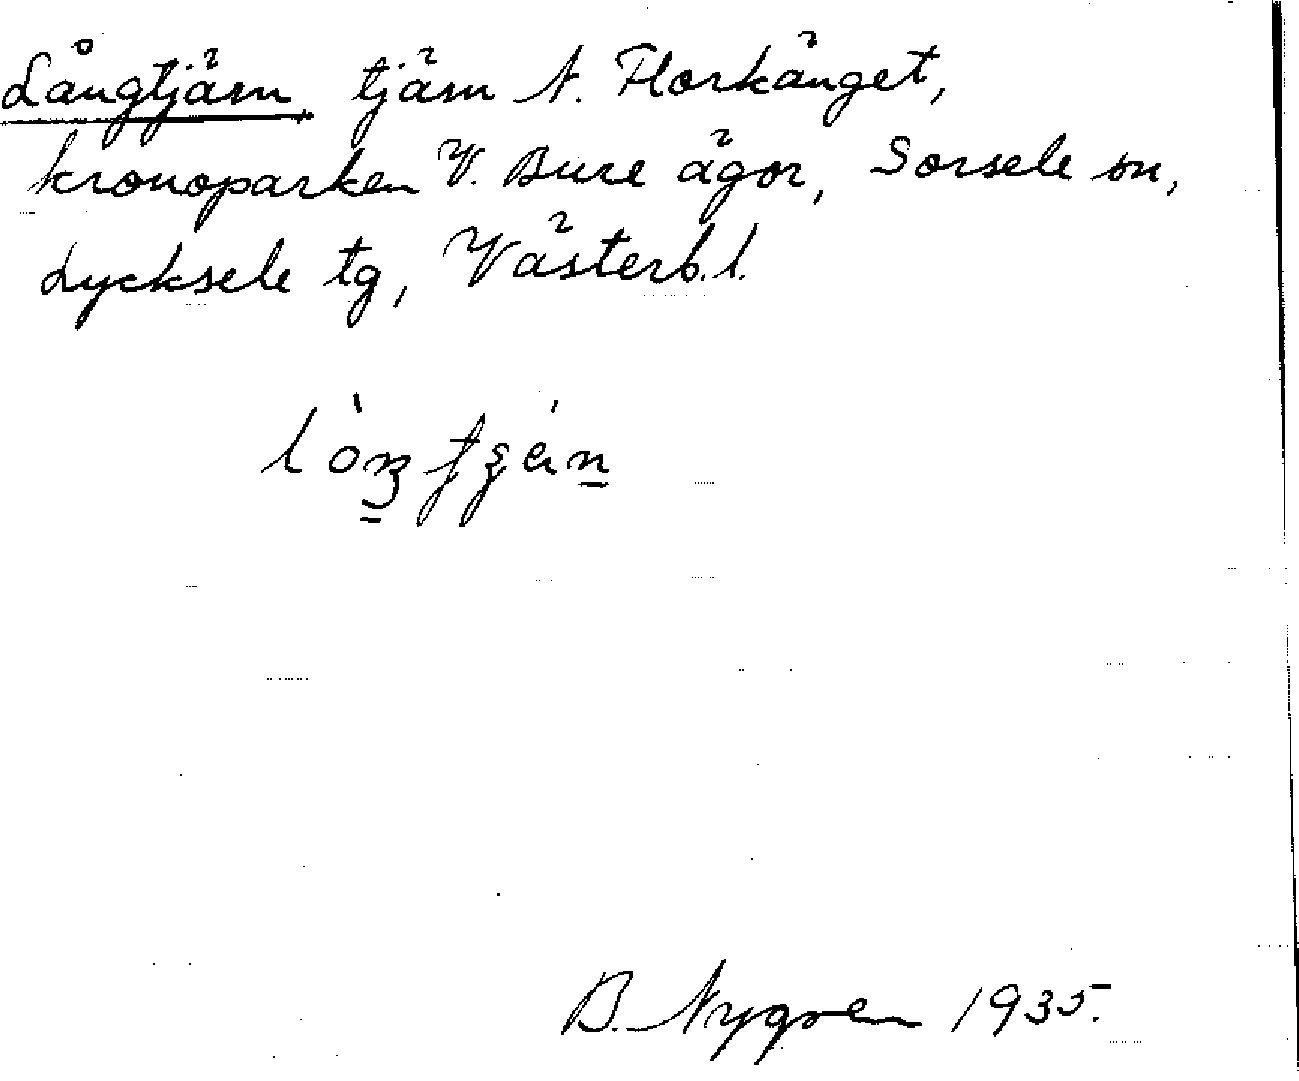 Långtjärn, tjärn N. Florkänget,
kronoparken V. Bure ägor, Sorsele sn,
Lycksele tg, Västerb. l.
B. Nygren 1935.